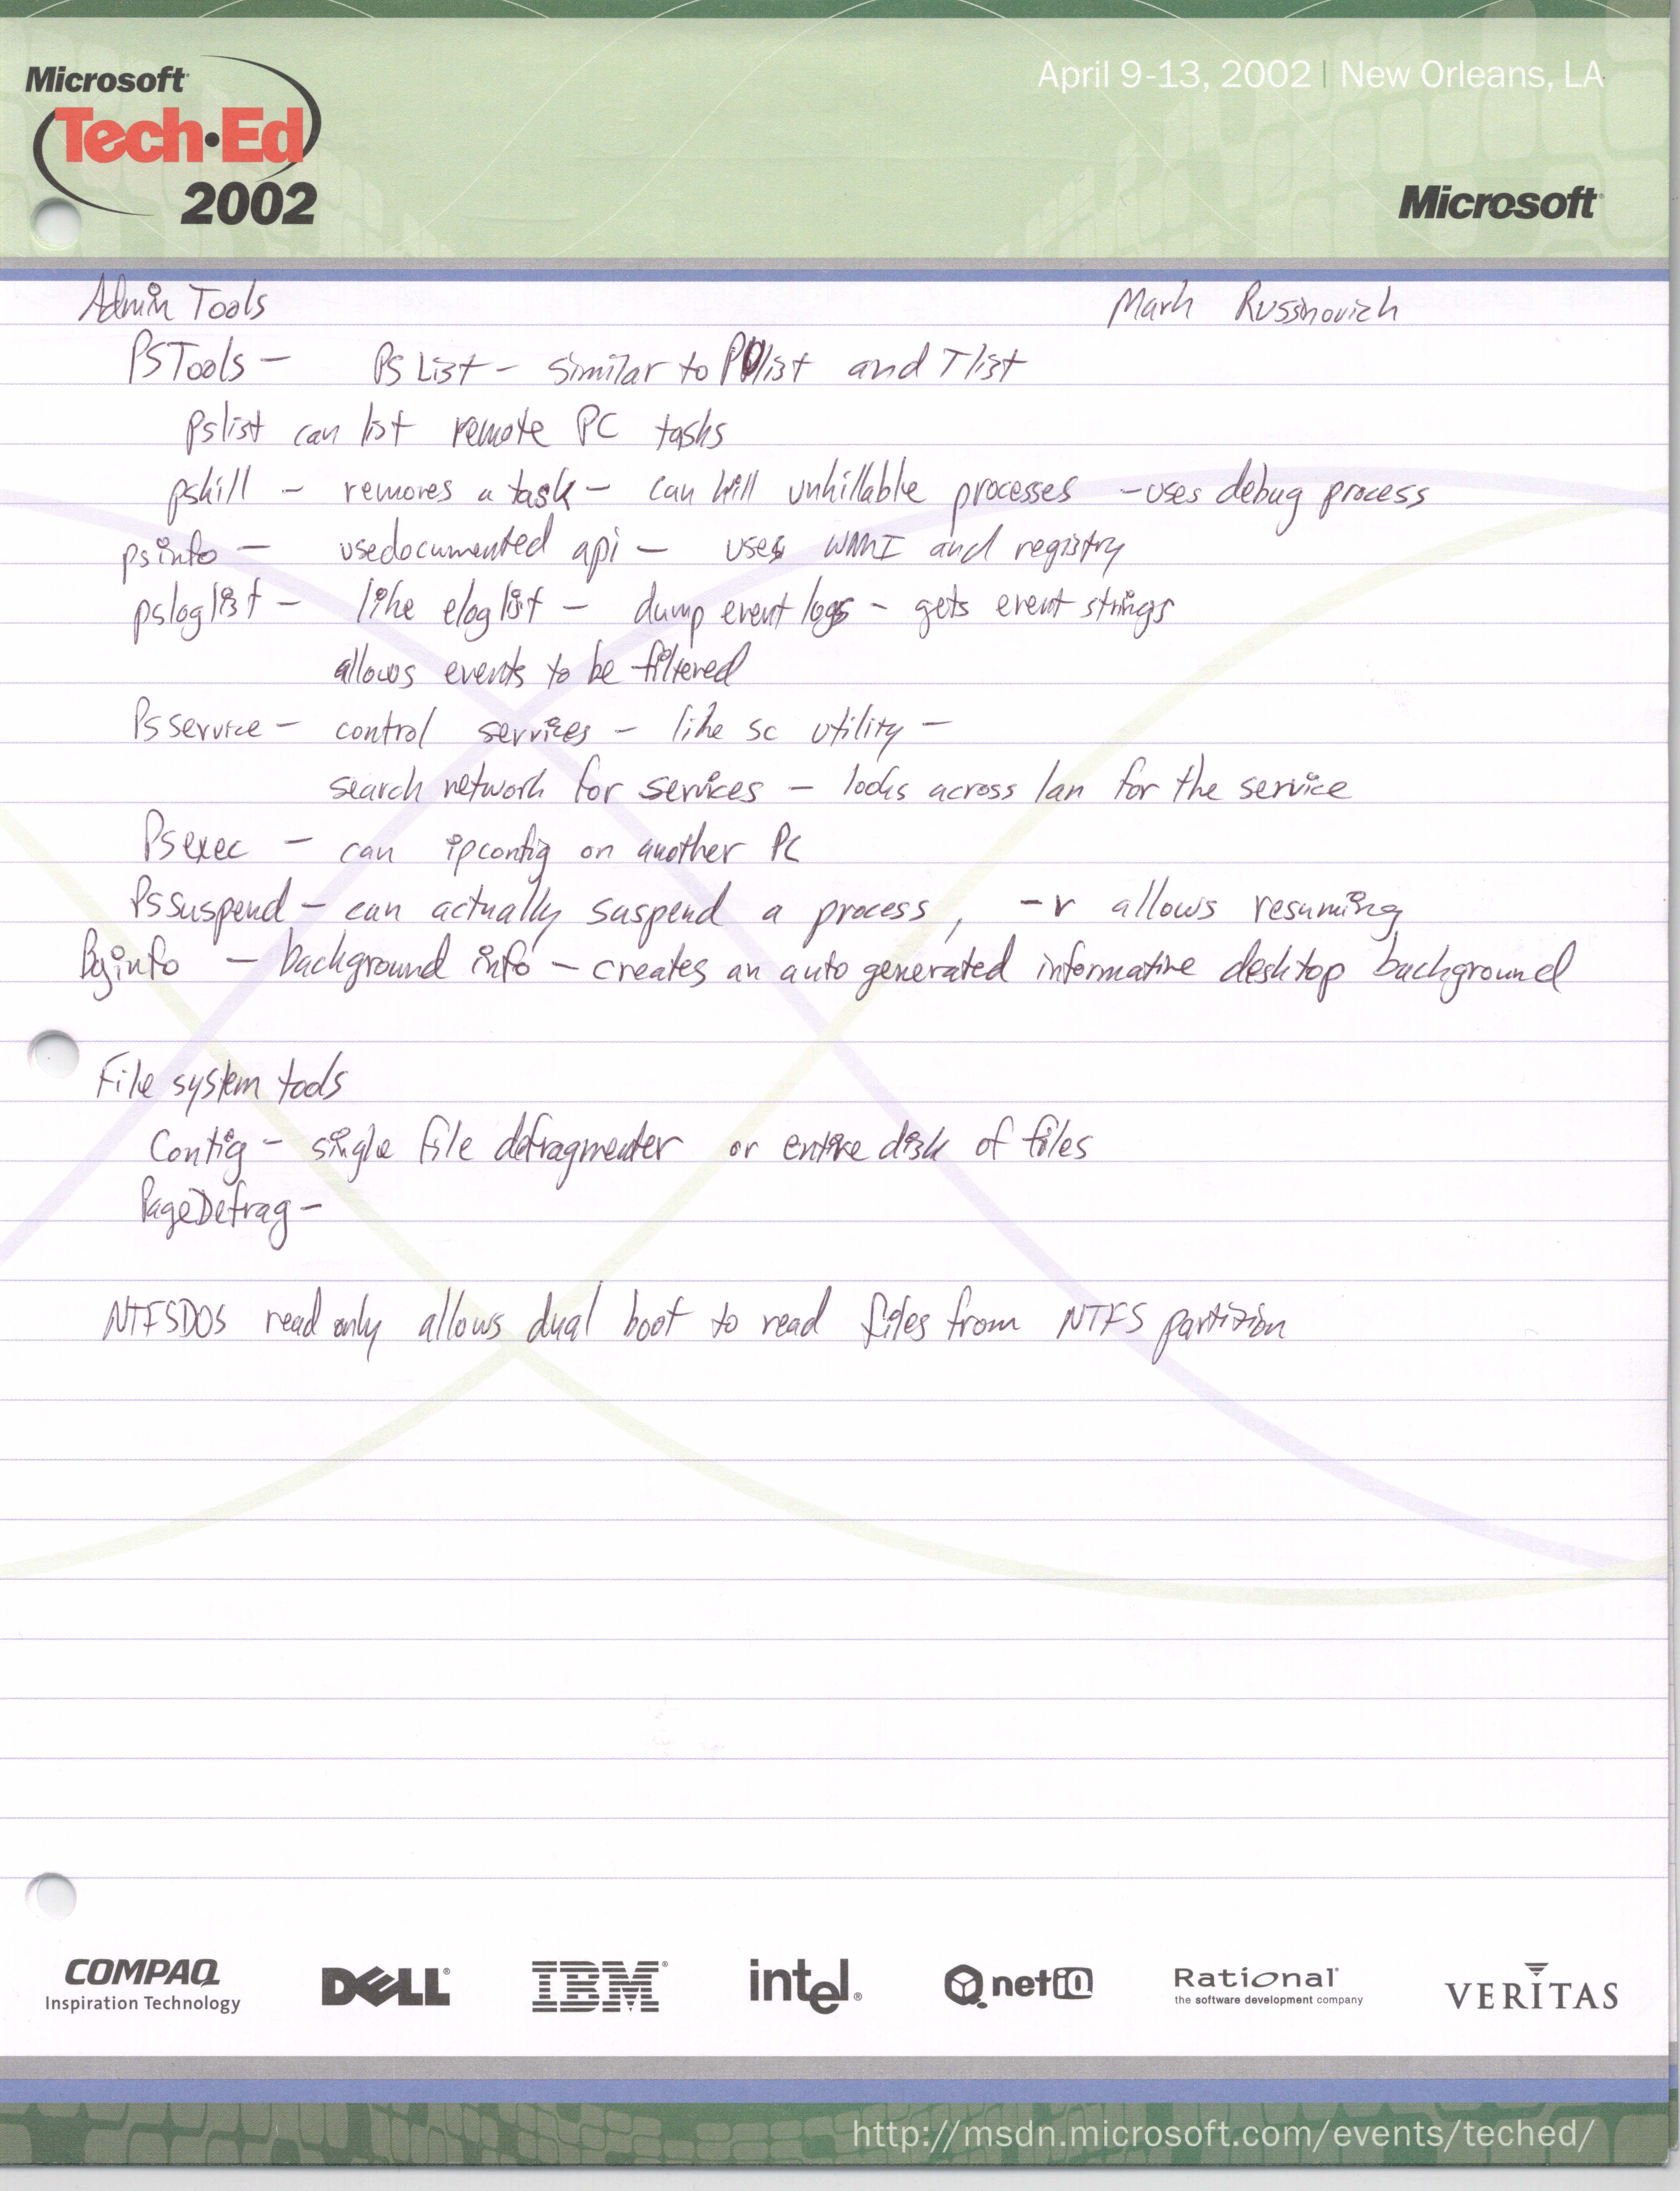 Microsoft
Tech·Ed
2002
April 9-13, 2002 | New Orleans, LA
Microsoft
Admin Tools Mark Russinovich
PSTools - PsList - similar to Pulist and Tlist
pslist can list remote PC tasks
pskill - removes a task - can kill unkillable processes - uses debug process
psinfo - usedocumented api - uses WMI and registry
psloglist - like eloglist - dump event logs - gets event strings
allows events to be filtered
Psservice - control services - like sc utility -
search network for services - looks across lan for the service
Psexec - can ipconfig on another PC
Pssuspend - can actually suspend a process, -r allows resuming
Bginfo - background info - creates an auto generated informative desktop background
File system tools
Contig - single file defragmenter or entire disk of files
PageDefrag -
NTFSDOS read only allows dual boot to read files from NTFS partition
COMPAQ
Inspiration Technology
DELL
IBM
intel
netiQ
Rational
the software development company
VERITAS
http://msdn.microsoft.com/events/teched/